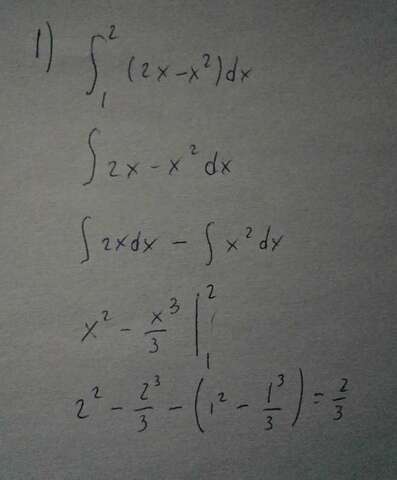 1) ∫₁² (2x-x²)dx
∫ 2x - x² dx
∫ 2xdx - ∫ x² dx
x² - x³/3 |₁²
2² - 2³/3 - (1² - 1³/3) = 2/3